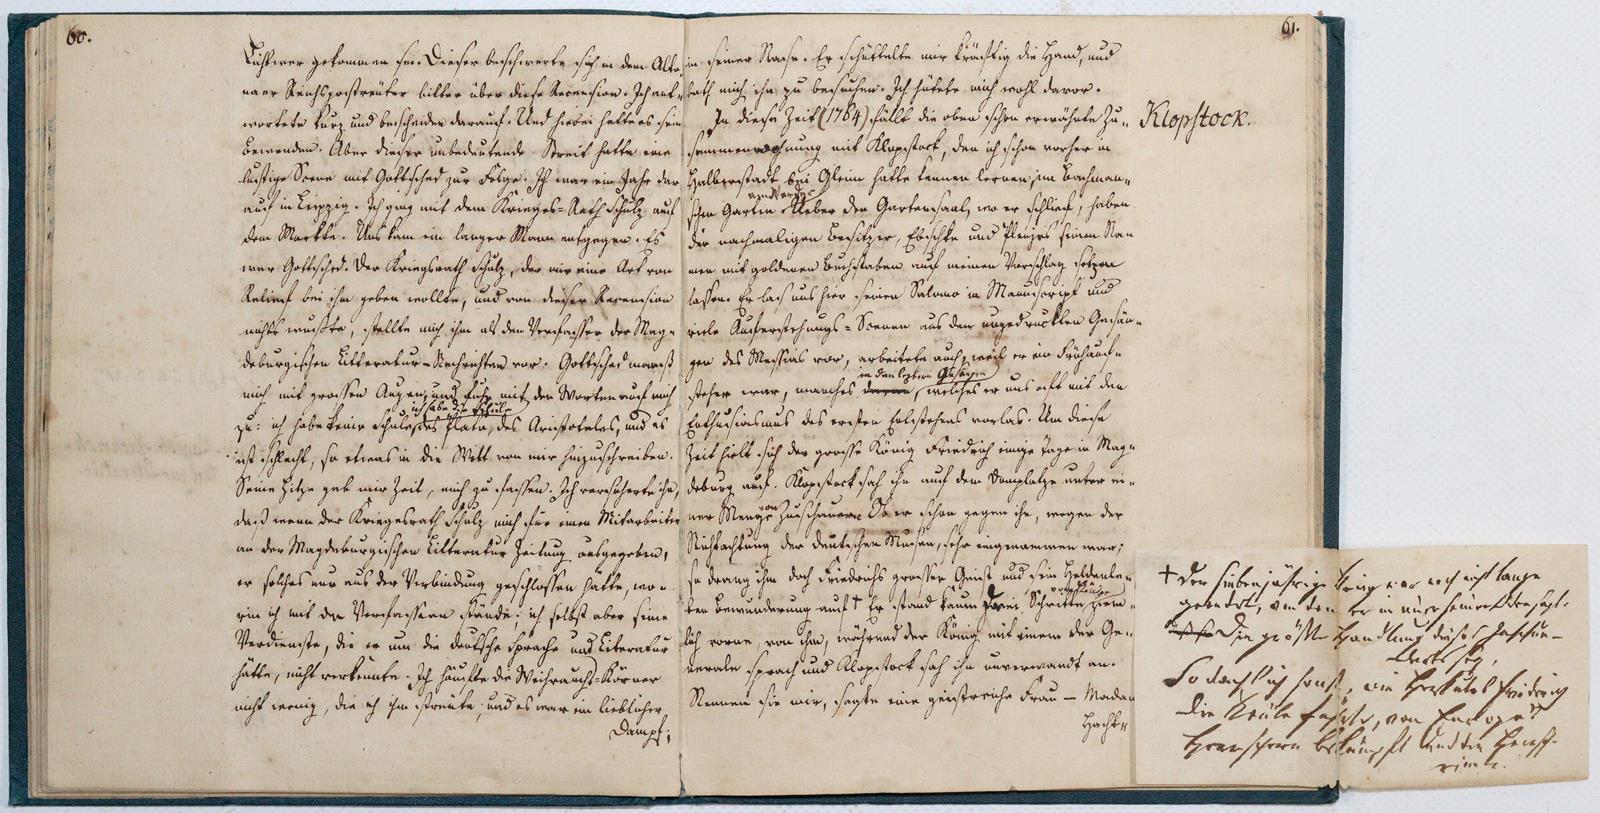 60.
Lichtwer gekommen sei. Dieser beschwerte sich in dem Alto-
naer Reichspostreuter bitter über diese Recension. Ich ant-
wortete kurz und bescheiden darauf. Und hiebei hatte es sein
Bewenden. Aber dieser unbedeutende Streit hatte eine
lustige Scene mit Gottsched zur Folge. Ich war ein Jahr dar
auf in Leipzig. Ich ging mit dem Krieges-Rath Schulz auf
dem Markte. Uns kam ein langer Mann entgegen. Es
war Gottsched. Der Kriegsrath Schulz, der mir eine Art von
Relief bei ihm geben wollte, und von dieser Recension
nichts wußte, stellte mich ihm als den Verfasser der Mag-
deburgischen Litteratur-Nachrichten vor. Gottsched maaß
mich mit grossen Augen, und fuhr mit den Worten auf mich
ich habe die Schule
zu: ich habe keine Schule, des Plato, des Aristoteles, und es
ist schlecht, so etwas in die Welt von mir hinzuschreiben.
Seine Hitze gab mir Zeit, mich zu fassen. Ich versicherte ihn,
daß wenn der Kriegesrath Schulz mich für einen Mitarbeiter
an der Magdeburgischen Litteratur Zeitung ausgegeben,
er solches nur aus der Verbindung geschlossen hätte, wo-
rin ich mit den Verfassern stünde; ich selbst aber seine
Verdienste, die er um die deutsche Sprache und Literatur
hätte, nicht verkännte. Ich häufte die Weihrauchs-Körner
nicht wenig, die ich ihm streute, und es war ein lieblicher
Dampf
61.
in seiner Nase. Er schüttelte mir kräftig die Hand, und
bath mich ihn zu besuchen. Ich hütete mich wohl davor.
In diese Zeit (1764) fällt die oben schon erwähnte Zu-
Klopstock.
sammenwohnung mit Klopstock, den ich schon vorher in
Halberstadt bei Gleim hatte kennen lernen, im Bachman-
schen Garten Ueber den Gartensaal, wo er schlief, haben
die nachmaligen Besitzer, und seinen Na-
men mit goldenen Buchstaben auf meinen Vorschlag setzen
lassen. Er las uns hier seinen Salomo in Manuscript und
viele Auferstehungs-Scenen aus den ungedruckten Gesän-
gen des Messias vor, arbeitete auch, weil er ein Frühauf-
in den letztern Gesängen
steher war, manches, welches er uns oft mit dem
Enthusiasmus des ersten Entstehens vorlas. Um diese
Zeit hielt sich der grosse König Friedrich einige Tage in Mag-
deburg auf. Klopstock sah ihn auf dem Domplatze unter ei-
ner Menge von Zuschauern Ob er schon gegen ihn, wegen der
Nichtachtung der deutschen Musen, sehr eingenommen war;
so drang ihm doch Friedrichs grosser Geist und sein Heldenle-
ben Bewunderung auf † Er stand kaum drei Schritte, ziem-
lich vorne, von ihm, während der König mit einem der Ge-
nerale sprach und Klopstock sah ihn unverwandt an.
Nennen sie mir, sagte eine geistreiche Frau – Madam
Hacht-
† Der siebenjährige Krieg war noch nicht lange
geendet, von dem er in einer seiner Oden sagt,
die größte Handlung dieses Jahrhun-
derts sey,
So dacht' ich sonst, wie Herkules Friedrich
Die Keule führte, von Europa's
Herrschern bekämpft und den Herrsche-
rinnen.